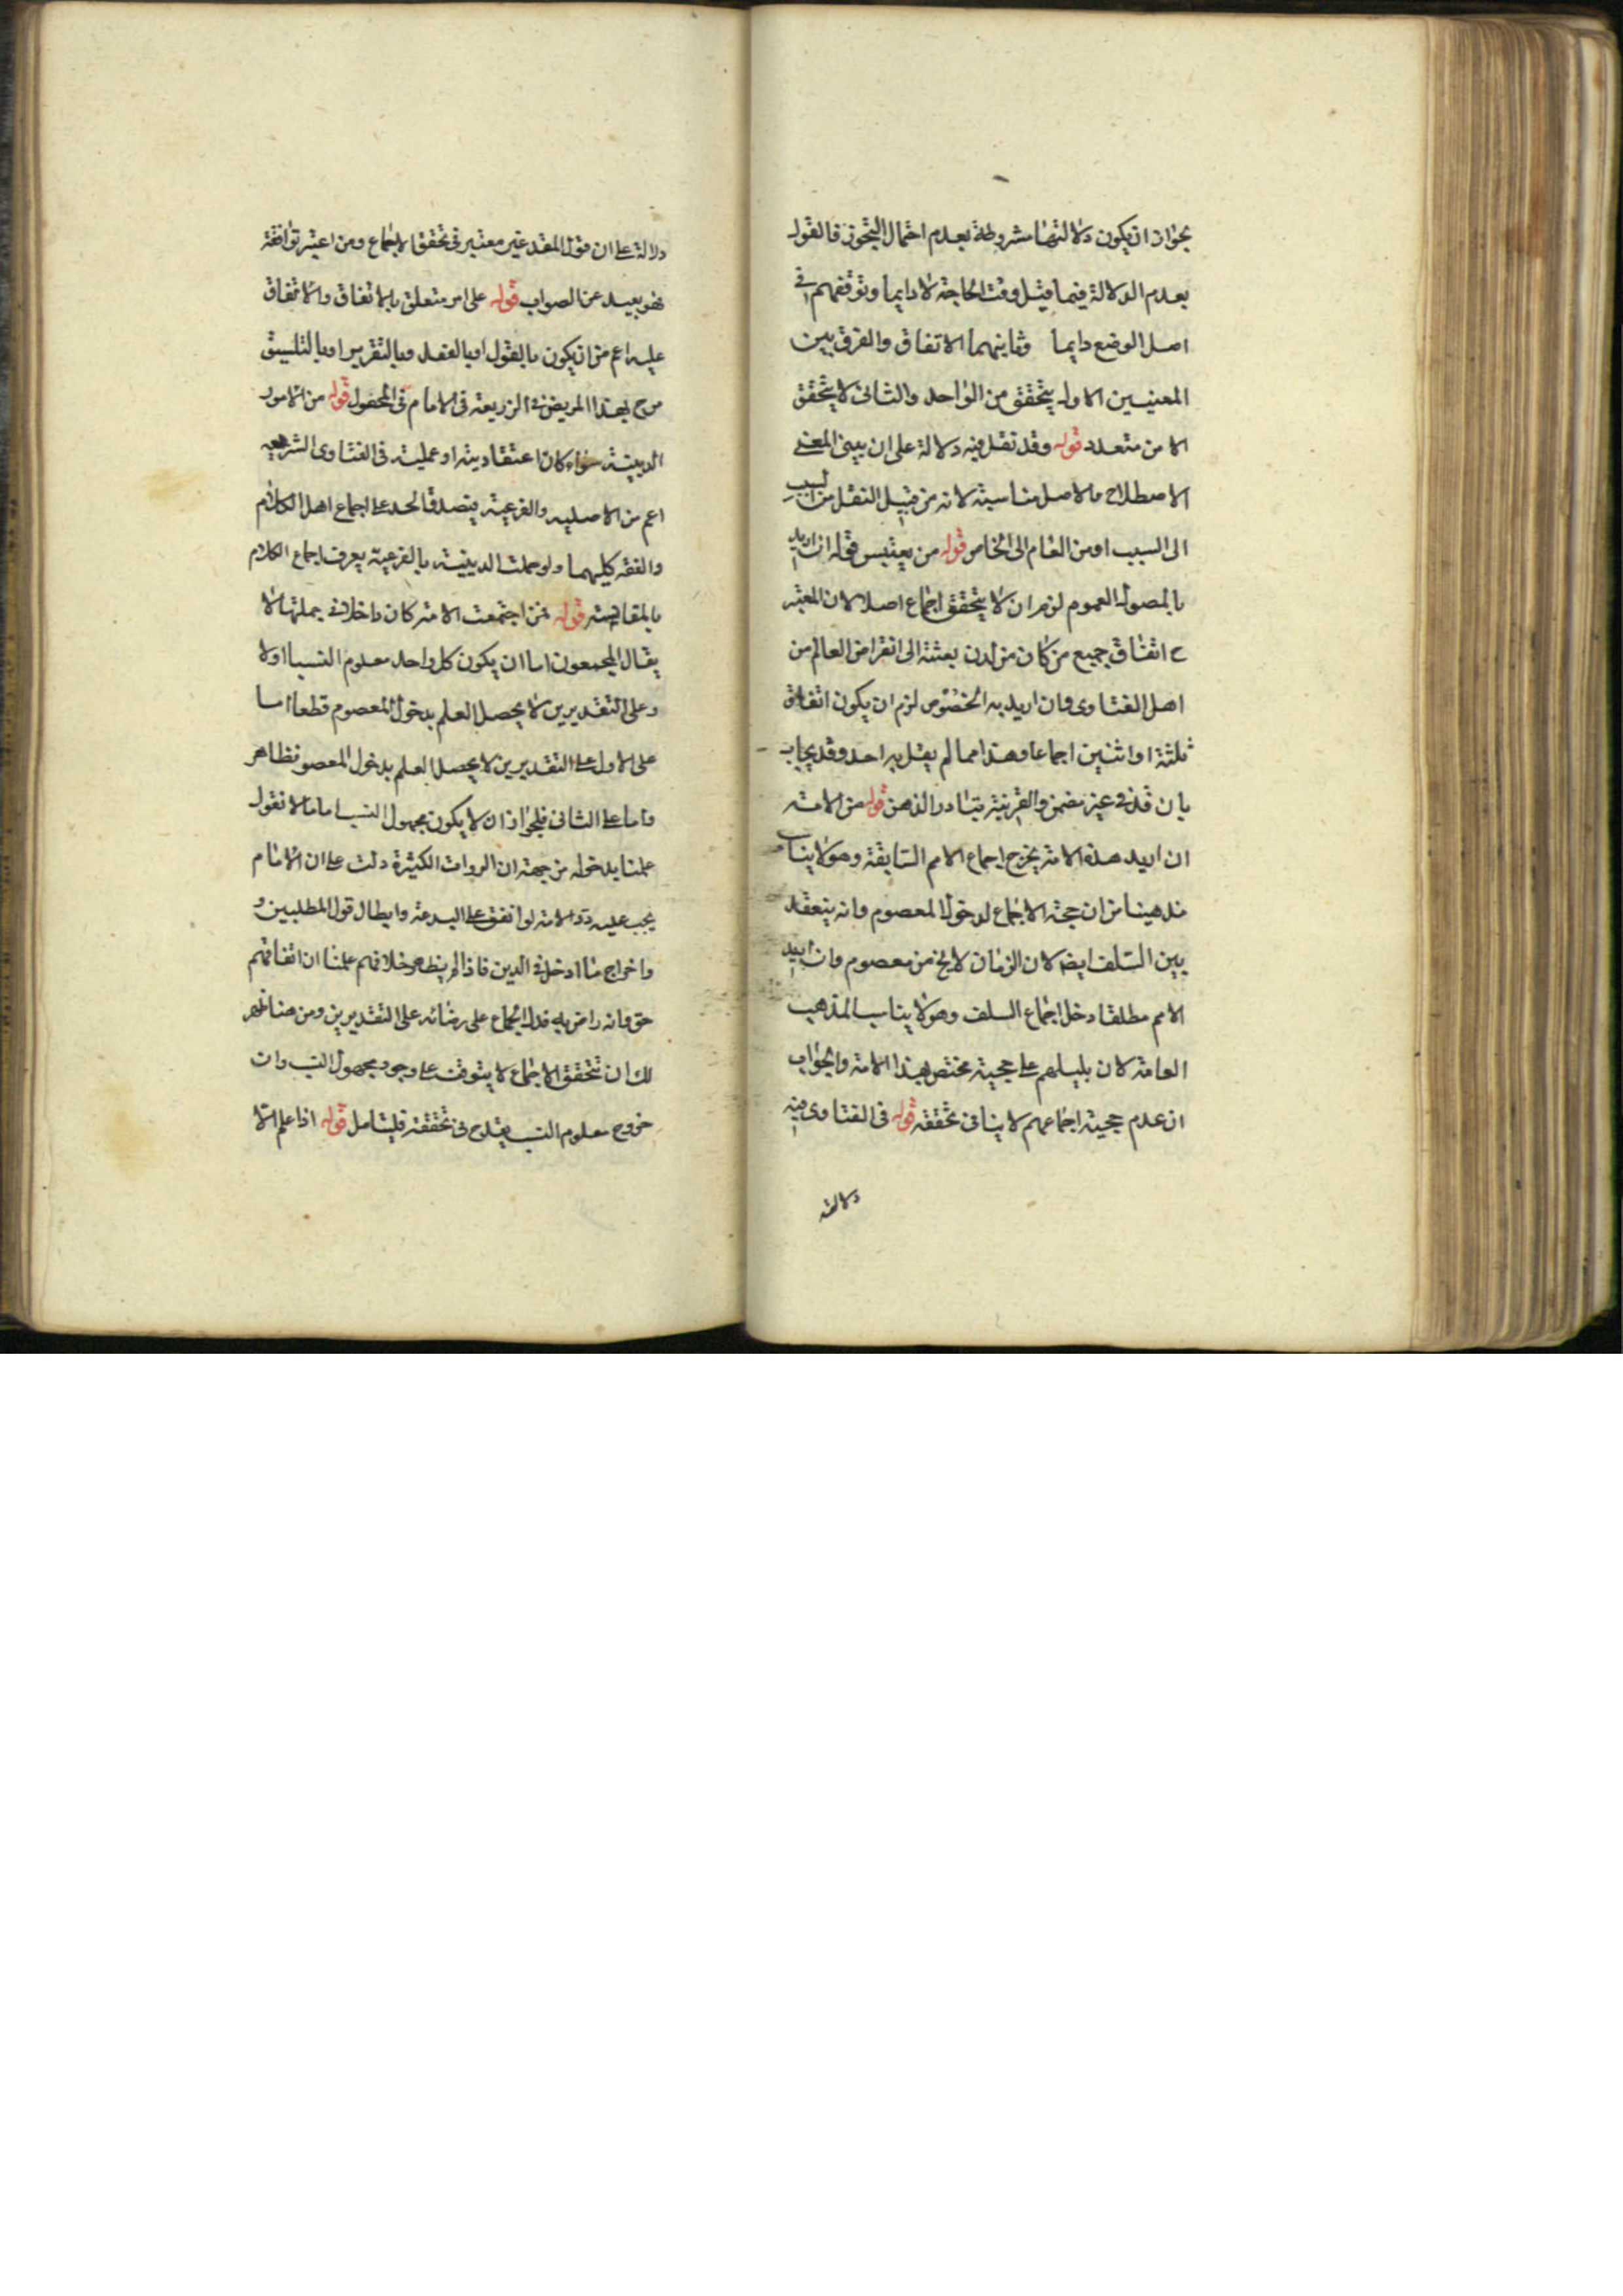 بجواز ان يكون دلالتها مشروطة بعدم احتمال التجوز فالقول
بعدم الدلالة فيما قبل وقت الحاجة لا دايما وتوقفهم في
اصل الوضع دايما وثانيهما الاتفاق والفرق بين
المعنيين الاول يتحقق من الواحد والثاني لا يتحقق
الا من متعدد قوله وقد نقل فيه دلالة على ان بين المعنى
الاصطلاح والاصل مناسبة لانه من قبيل النقل من السبب
الى السبب او من العام الى الخاص قوله من يعتبر قوله ان اريد
بالموصول العموم لزم ان لا يتحقق اجماع اصلا لان المعتبر
ح اتفاق جميع من كان من لدن بعثته الى انقراض العالم من
اهل الفتاوى وان اريد به الخصوص لزم ان يكون اتفاق
ثلثة او اثنين اجماعا وهذا مما لم يقل به احد وقد يجاب
بان والقرينة يتبادر الذهن قوله من الامة
ان اريد هذه الامة يخرج اجماع الامم السابقة وهو لا يناسب
مذهبنا من ان حجة الاجماع لدخول المعصوم وانه ينعقد
بين السلف ايضا لان الزمان لا يخ من معصوم وان اريد
الامم مطلقا دخل اجماع السلف وهو لا يناسب المذهب
العامة لان دليلهم على حجية مختص بهذا الامة والجواب
ان عدم حجية اجماعهم لا ينافى تحققه قوله فى الفتاوى فيه
دلالة
دلالة على ان قول المقلد غير معتبر فى تحقق الاجماع ومن اعتبر توافقه
فهو بعيد عن الصواب قوله على امر متعلق بالاتفاق والاتفاق
عليه اعم من ان يكون بالقول او بالفعل وبالتقرير او بالتلفيق
صرح بهذا المرتضى فى الذريعة فى الامام فى المحصول قوله من الامور
الدينية سواء كان اعتقادية او عملية فى الفتاوى الشرعية
اعم من الاصلية والفرعية يتصدق الحد على اجماع اهل الكلام
والفقه كليهما ولو حملت الدينية بالفرعية يعرف اجماع الكلام
بالمقايسة قوله فمن اجتمعت الامة كان داخلا فى جملتها لا
يقال المجمعون اما ان يكون كل واحد معلوم النسب او لا
وعلى التقديرين لا يحصل العلم بدخول المعصوم قطعا اما
على الاول على التقديرين لا يحصل العلم بدخول المعصوم فظاهر
واما على الثانى فلجواز ان لا يكون مجهول النسب اماما لا نقول
علمنا بدخوله من جهة ان الروات الكثيرة دلت على ان الامام
يجب عليه رد الامة لو اتفق على البدعة وابطال قول المطلبين و
واخراج ما ادخل فى الدين فاذا لم يظهر خلافهم علمنا ان اتفاقهم
حق وانه راض به فدل اجماع على رضائه على التقديرين ومن هنا ظهر
لك ان تحقق الاجماع لا يتوقف على وجود مجهول النسب وان
خروج معلوم النسب يقدح فى تحققه فليتامل قوله اذا علم الا